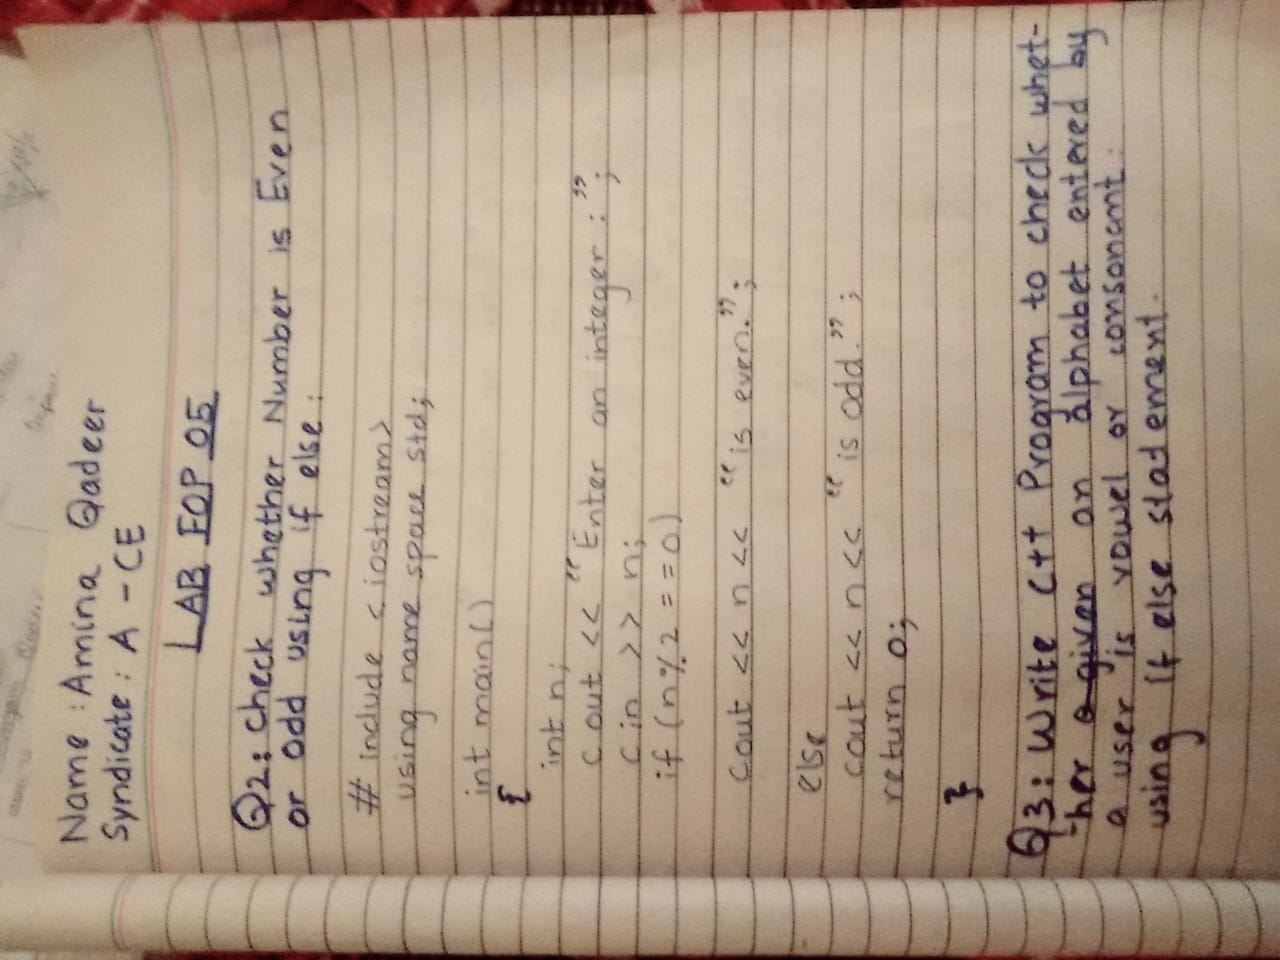 Name : Amina Qadeer
Syndicate : A - CE
LAB FOP 05
Q2: Check whether Number is Even
or odd using if else :
# include < iostream>
using name space std;
int main()
{
int n;
cout << "Enter an integer : ";
cin >> n;
if (n%2 == 0)
cout << n << " is even.";
else
cout << n << " is odd.";
return 0;
}
Q3: Write C++ Program to check whet-
-her a given an alphabet entered by
a user is vowel or consonant.
using if else statement.